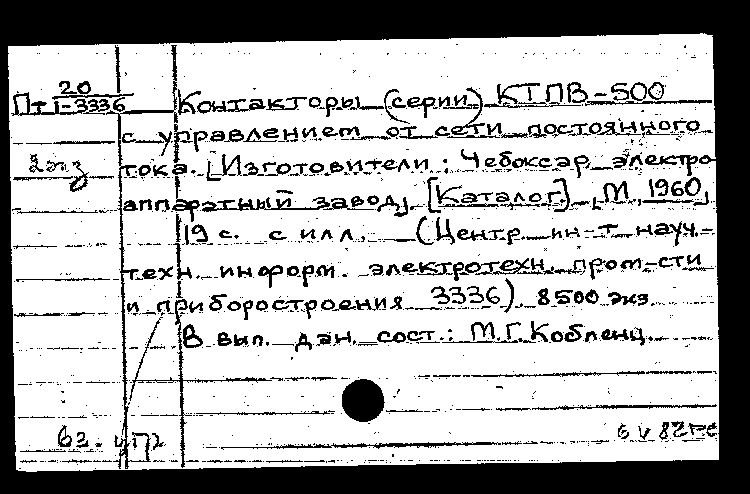 Пт 20/1-3336
Контакторы (серии) КТПВ-500
с управлением от сети постоянного
2 экз
тока. [Изготовители: Чебоксар. электро-
аппаратный завод]. [Каталог]. [М., 1960,]
19 с. с илл. (Центр. ин-т науч.-
техн. информ. электротехн. пром-сти
и приборостроения 3336). 8500 экз.
В вып. дан. сост.: М.Г. Кобленц.
62.